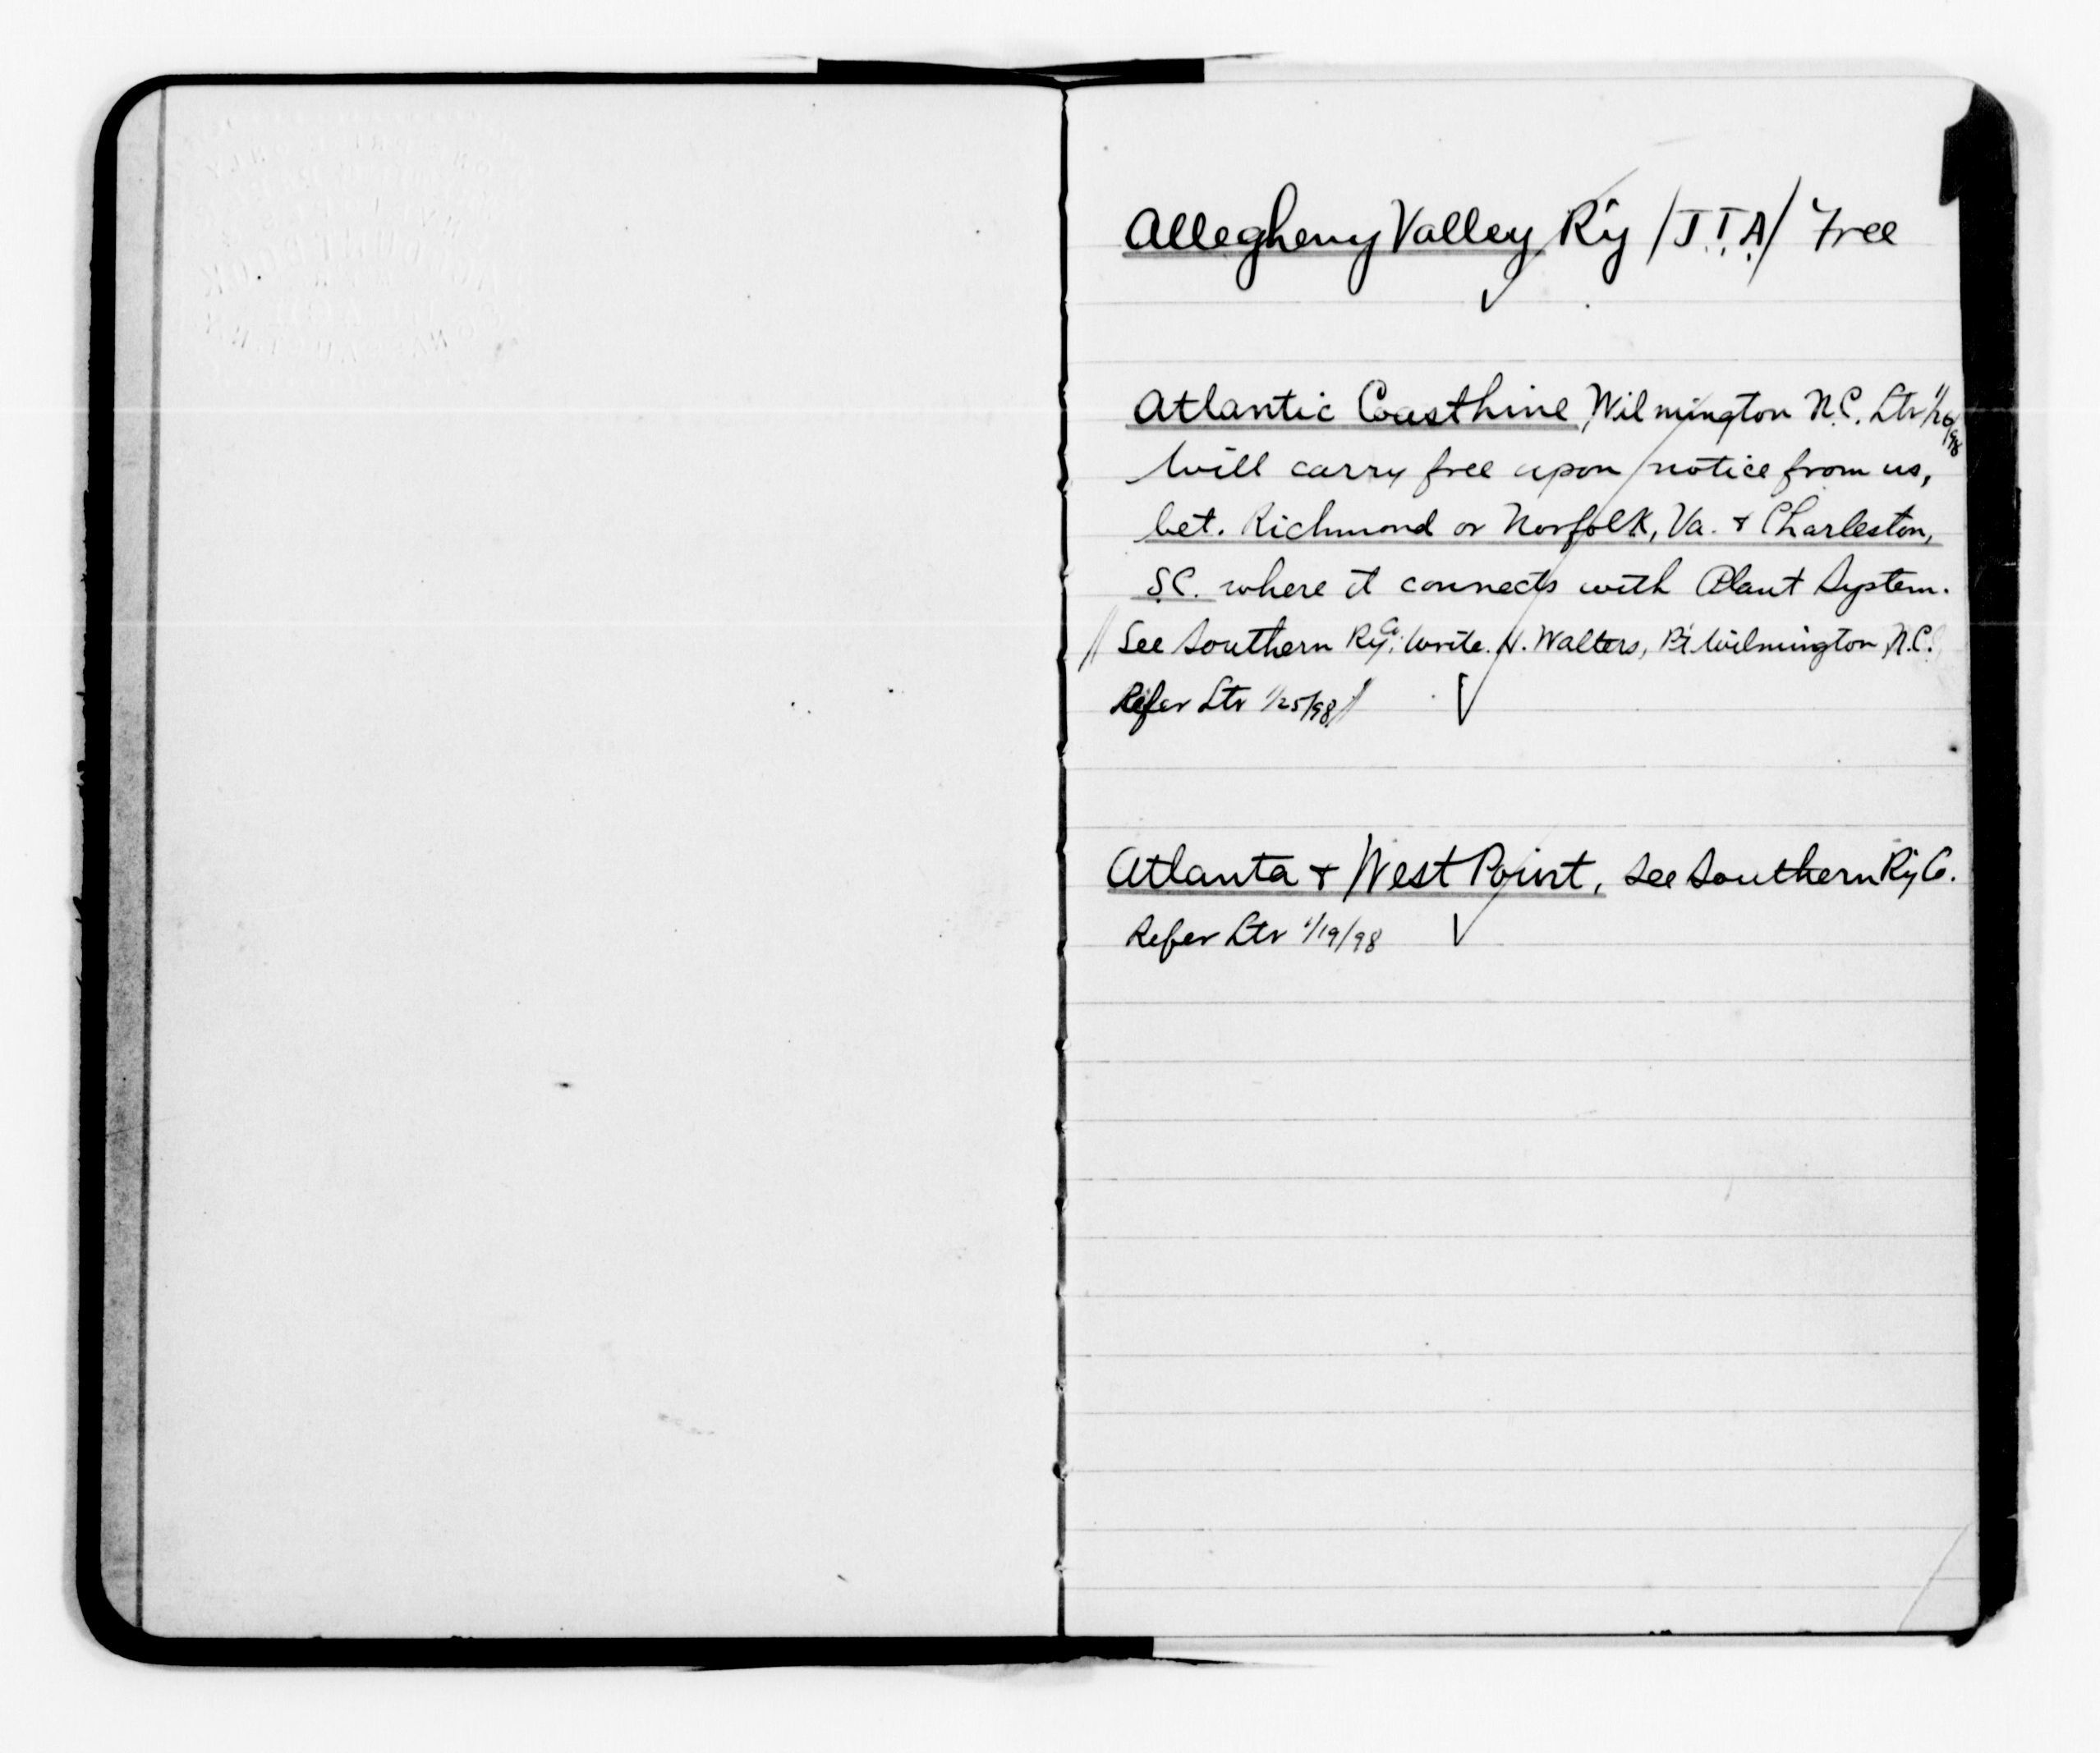 Allegheny Valley Ry /J.T.A/ Free
Atlantic Coast Line Wilmington N.C. Ltr 1/26/98
Will carry free upon notice from us,
bet. Richmond or Norfolk, Va. & Charleston,
S.C. where it connects with Plant System.
// See Southern Ry. Co. Write. H. Walters, Wilmington N.C.
Refer Ltr 1/25/98 //
Atlanta & West Point, See Southern Ry Co.
Refer Ltr 1/19/98